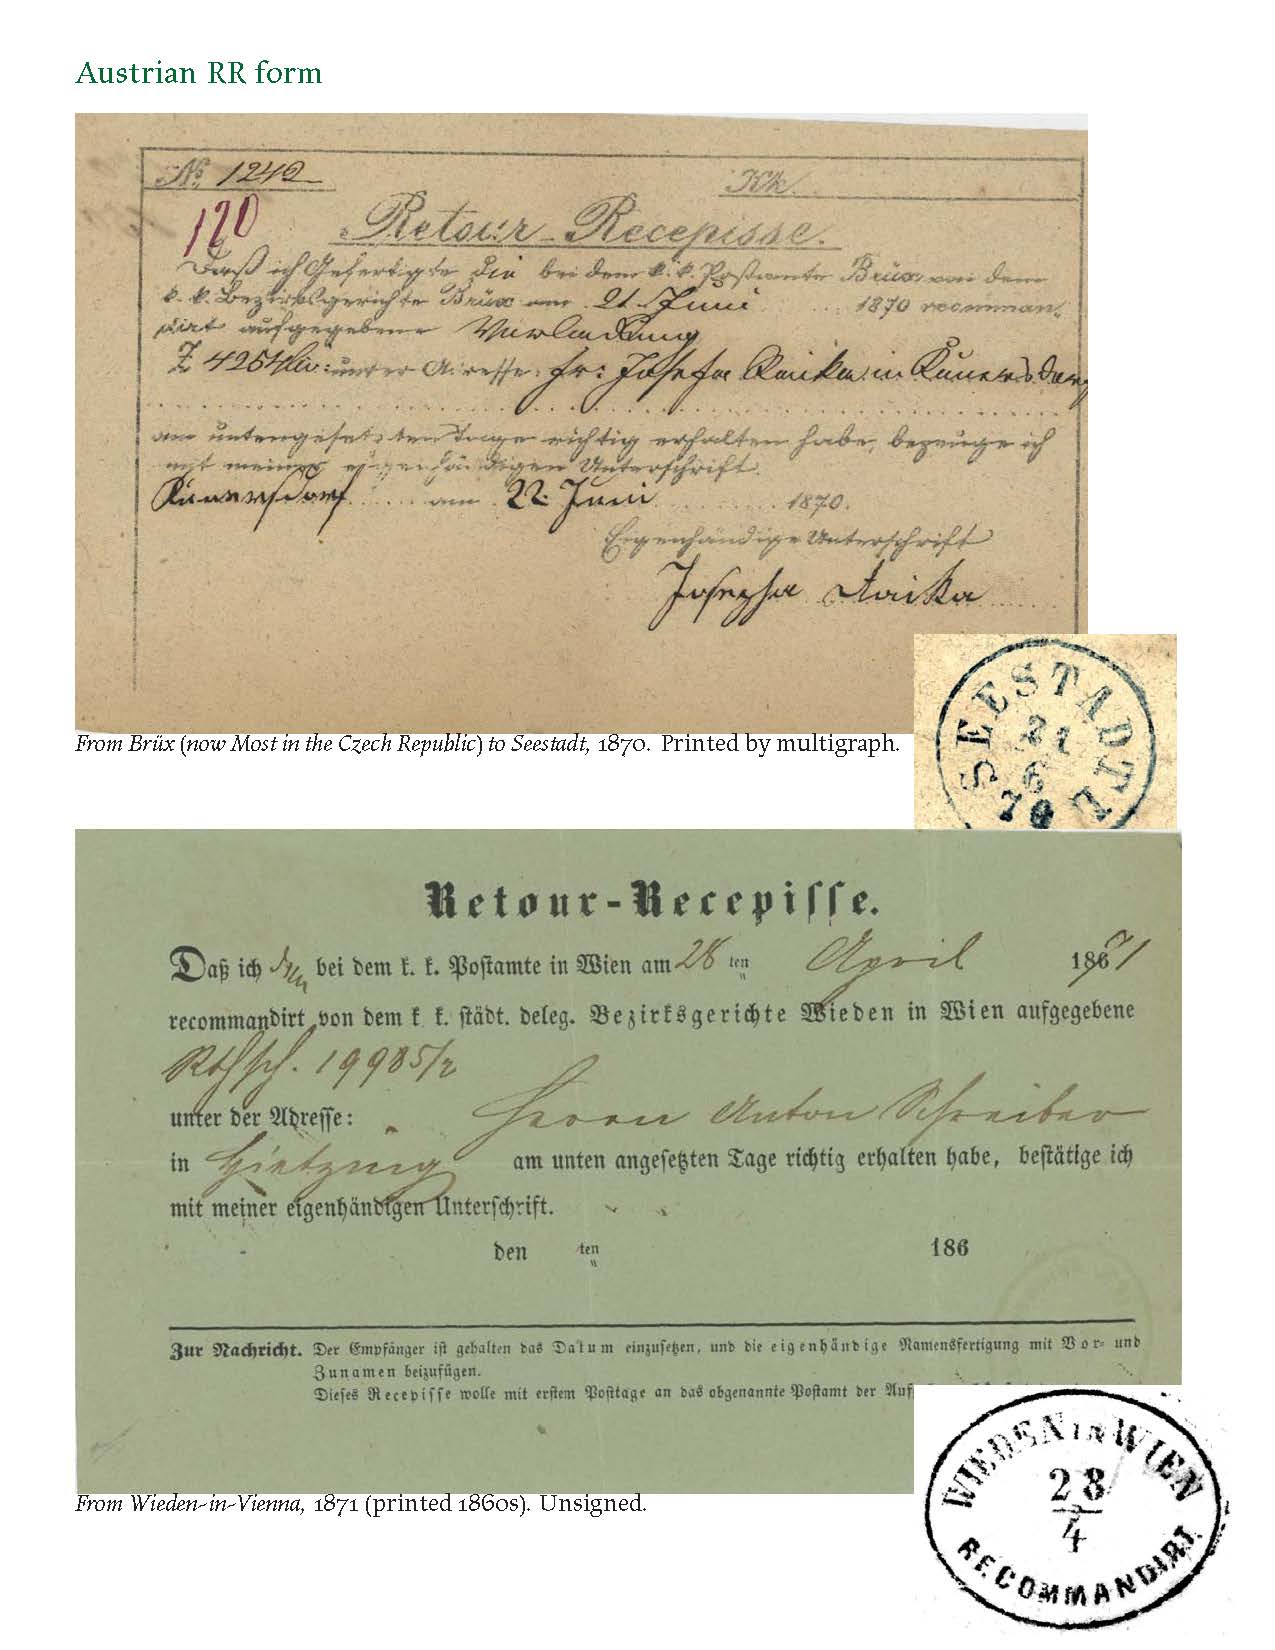 Austrian RR form
No. 1240
Kk.
120
Retour-Recepisse.
Daß ich Gefertigte die bei dem k. k. Postamte Brüx von dem
k. k. Bezirksgerichte Brüx am 21 Juni 1870 recomman-
dirt aufgegebene
unter Adresse: Josefa in
am untengesetzten Tage richtig erhalten habe, bezeuge ich
mit meiner eigenhändigen Unterschrift.
am 22. Juni 1870.
Eigenhändige Unterschrift
Josepha
SEESTADTL
21
6
70
From Brüx (now Most in the Czech Republic) to Seestadt, 1870. Printed by multigraph.
Retour-Recepisse.
Daß ich den bei dem k. k. Postamte in Wien am 28 ten April 1871
recommandirt von dem k. k. städt. deleg. Bezirksgerichte Wieden in Wien aufgegebene
19985/2
unter der Adresse: Herrn Anton Schreiber
in Hietzing am unten angesetzten Tage richtig erhalten habe, bestätige ich
mit meiner eigenhändigen Unterschrift.
den ten 186
Zur Nachricht. Der Empfänger ist gehalten das Datum einzusetzen, und die eigenhändige Namensfertigung mit Vor- und
Zunamen beizufügen.
Dieses Recepisse wolle mit erstem Posttage an das obgenannte Postamt der Auf
WIEDEN in WIEN
28
4
RECOMMANDIRT
From Wieden-in-Vienna, 1871 (printed 1860s). Unsigned.